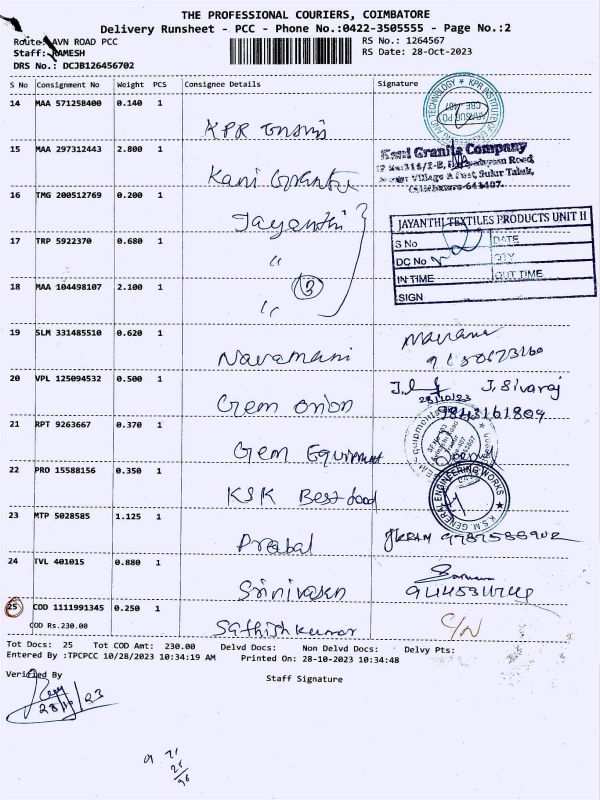 THE PROFESSIONAL COURIERS, COIMBATORE
Delivery Runsheet - PCC - Phone No.:0422-3505555 - Page No.:2
Route: AVN ROAD PCC
RS No.: 1264567
Staff: RAMESH
RS Date: 28-Oct-2023
DRS No.: DCJB126456702
S No Consignment No Weight PCS Consignee Details Signature
14 MAA 571258400 0.140 1
KPR
15 MAA 297312443 2.800 1
Kani
Kani Granite Company
Coimbatore-641407.
16 TMG 200512769 0.200 1
Jayanthi
JAYANTHI TEXTILES PRODUCTS UNIT II
S No DATE
DC No QTY
IN TIME OUT TIME
SIGN
17 TRP 5922370 0.680 1
"
18 MAA 104498107 2.100 1
3
"
19 SLM 331485510 0.620 1
Navamani
20 VPL 125094532 0.500 1
Gem Orion
28/10/23 J. Sivaraj
9843161809
21 RPT 9263667 0.370 1
Gem Equipment
22 PRO 15588156 0.350 1
KSK Best food
K.S.M. GENERAL ENGINEERING WORKS
23 MTP 5028585 1.125 1
Prabal
24 TVL 401015 0.880 1
Srinivasan
25 COD 1111991345 0.250 1
COD Rs.230.00
Sathish kumar
C/N
Tot Docs: 25 Tot COD Amt: 230.00 Delvd Docs: Non Delvd Docs: Delvy Pts:
Entered By :TPCPCC 10/28/2023 10:34:19 AM Printed On: 28-10-2023 10:34:48
Verified By
Staff Signature
28/10/23